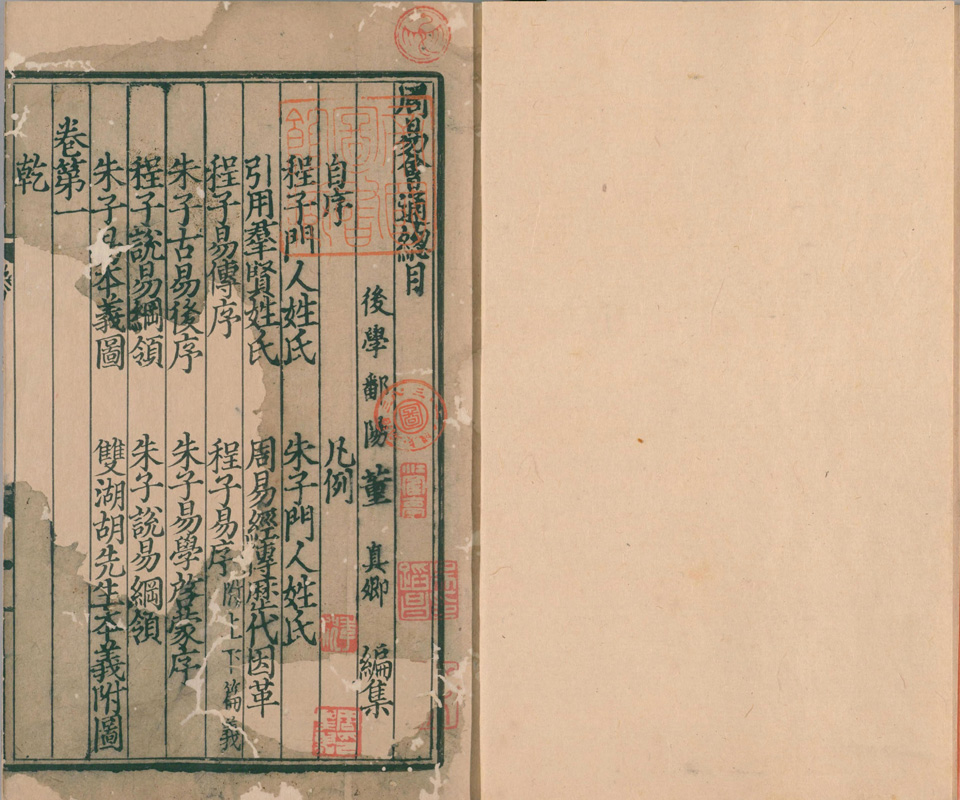 周易會通緫目
後學鄱陽董真卿編集
自序 凡例
程子門人姓氏 朱子門人姓氏
引用羣賢姓氏 周易經傳歷代因革
程子易傳序 程子易序附上下篇義
朱子古易後序 朱子易學啓蒙序
程子說易綱領 朱子說易綱領
朱子易本義圖 雙湖胡先生本義附圖
卷第一
乾